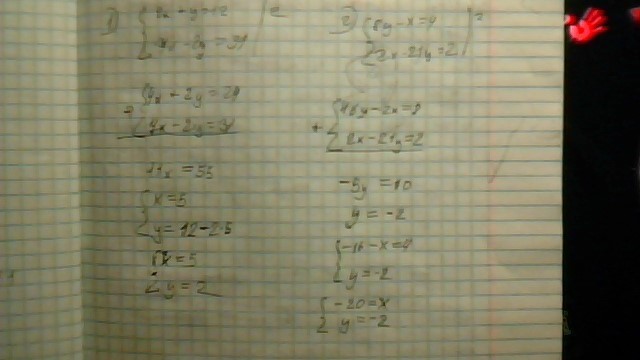 1) { 2x + y = 12 | 2
{ 7x - 2y = 31
+ { 4x + 2y = 24
{ 7x - 2y = 31
11x = 55
{ x = 5
{ y = 12 - 2·5
{ x = 5
{ y = 2
2) { 8y - x = 4 | 2
{ 2x - 21y = 2
+ { 16y - 2x = 8
{ 2x - 21y = 2
-5y = 10
y = -2
{ -16 - x = 4
{ y = -2
{ -20 = x
{ y = -2